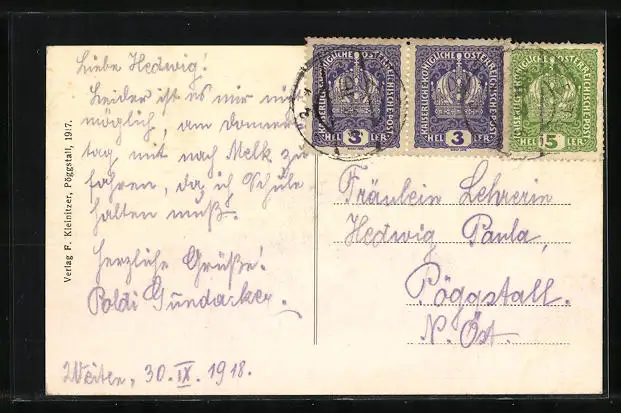 Liebe Hedwig!
Leider ist es mir nicht
möglich, am Donners-
tag mit nach Melk zu
fahren, da ich Schule
halten muß.
Herzliche Grüße!
Poldi Gundacker.
Weiten, 30. IX. 1918.
Verlag F. Kleinitzer, Pöggstall, 1917.
KAISERLICHE KÖNIGLICHE ÖSTERREICHISCHE POST
3
HELLER
KAISERLICHE KÖNIGLICHE ÖSTERREICHISCHE POST
3
HELLER
KAISERLICHE KÖNIGLICHE ÖSTERREICHISCHE POST
5
HELLER
Fräulein Lehrerin
Hedwig Paula,
Pöggstall.
N. Öst.